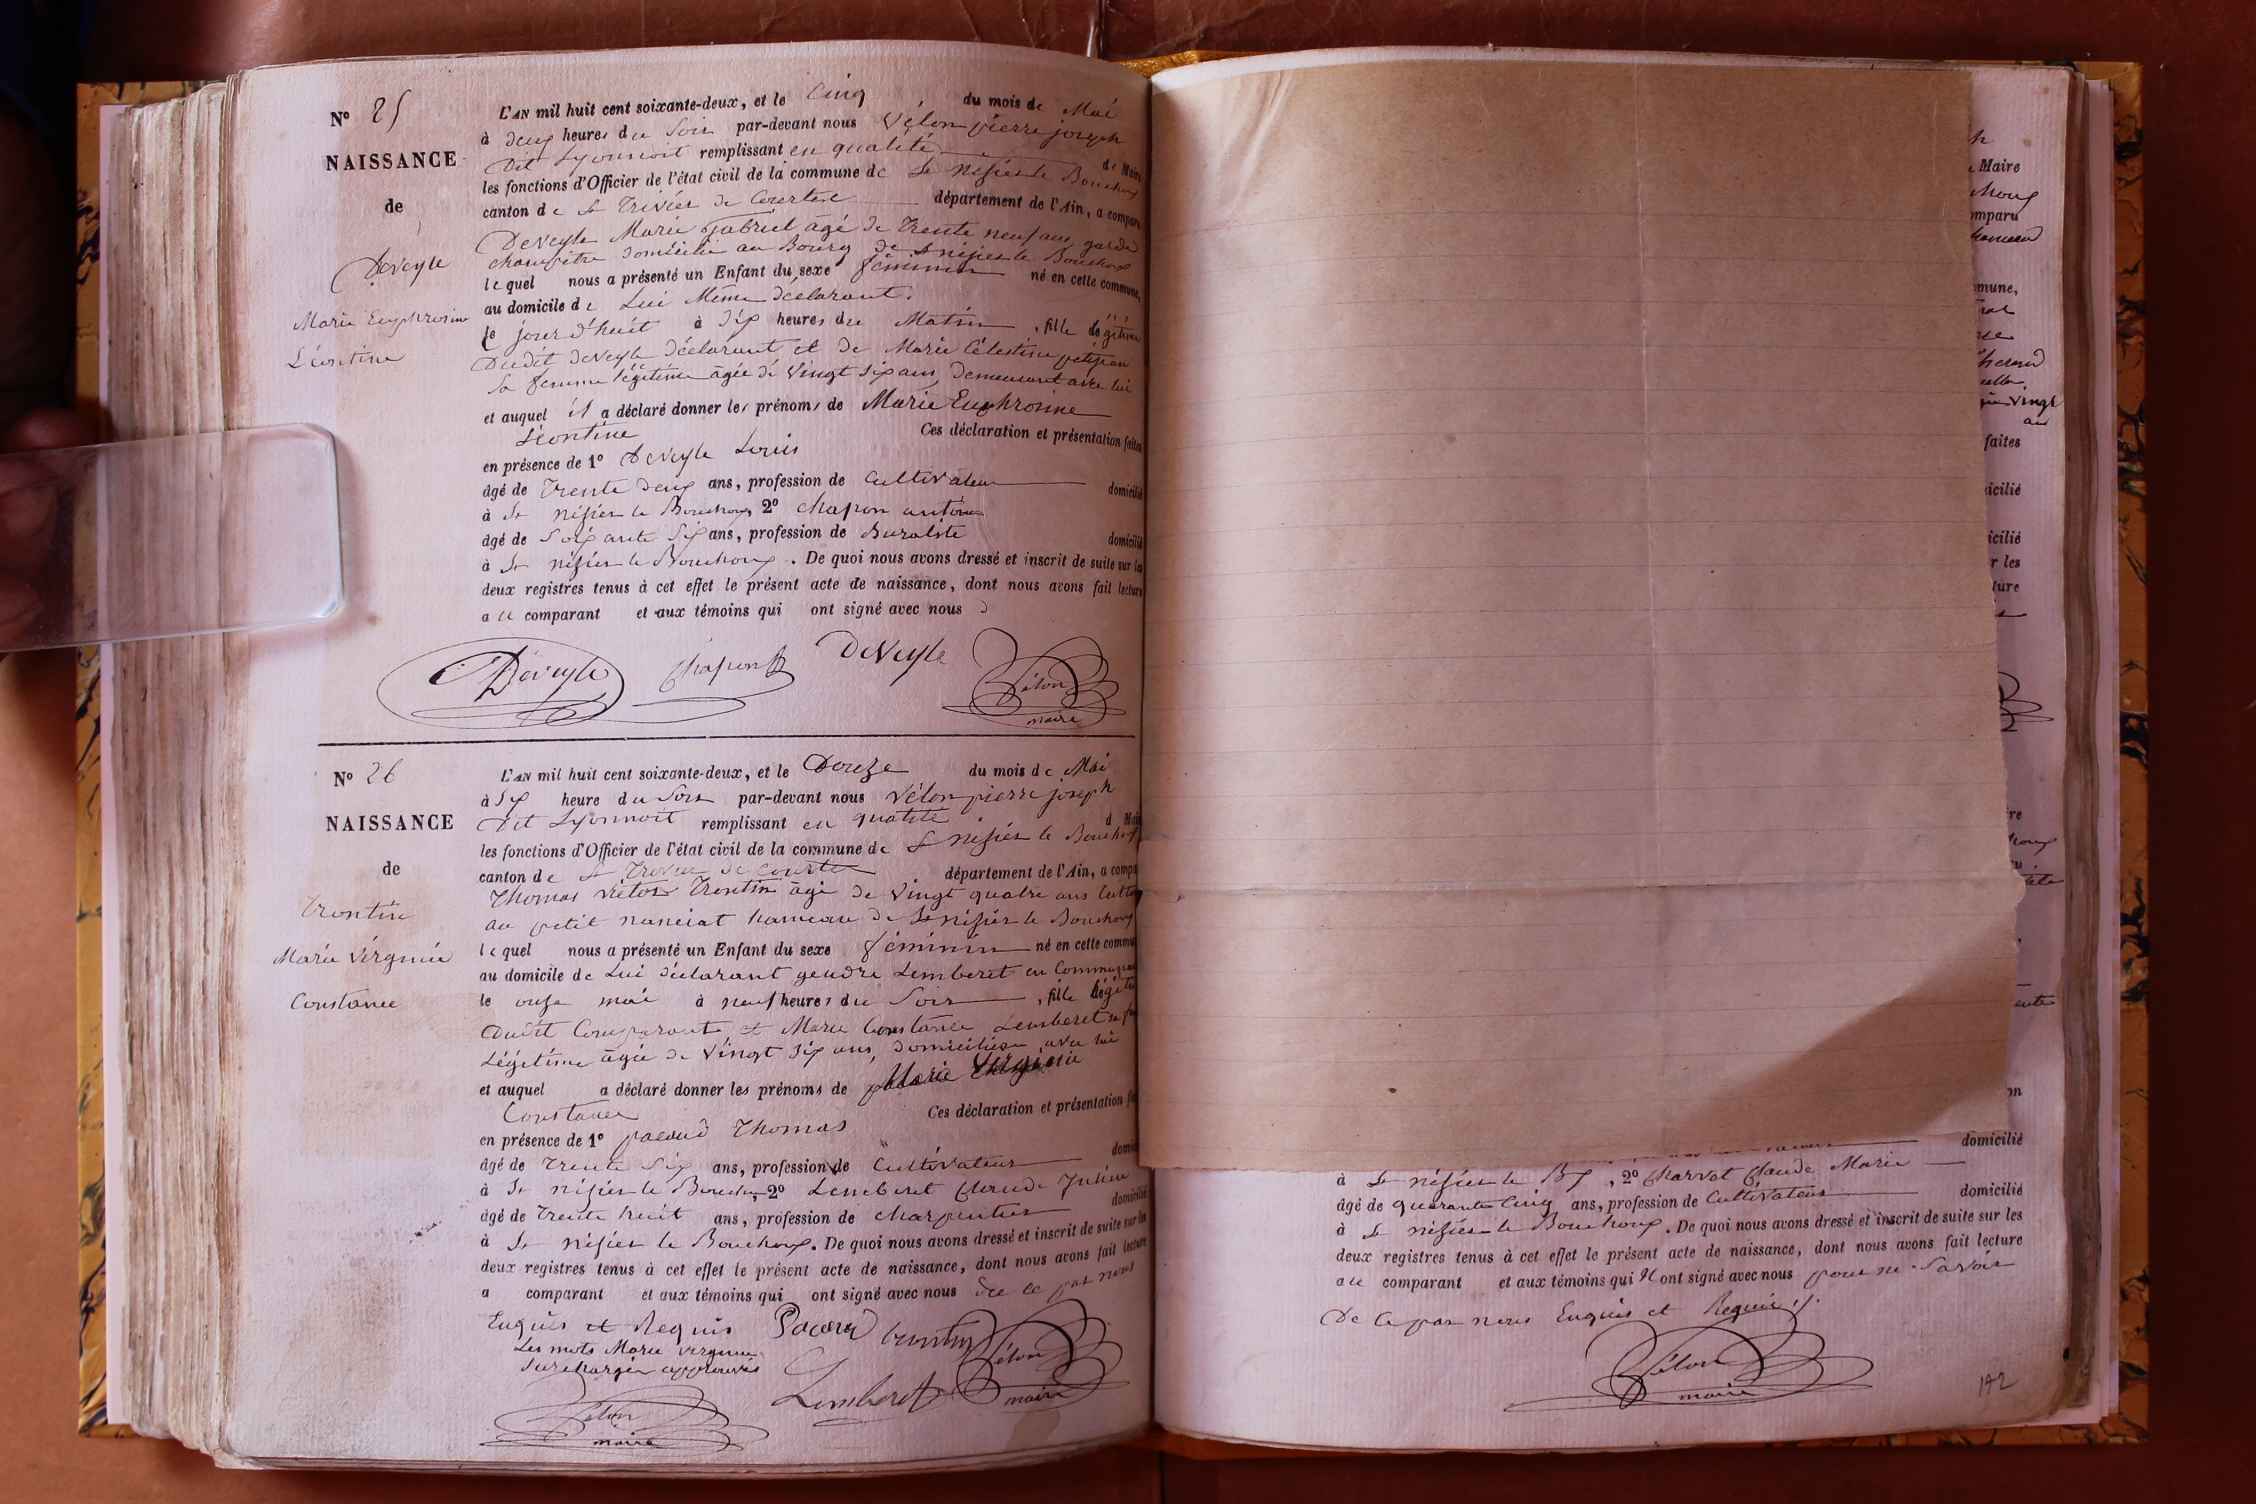 N° 25
NAISSANCE
de
Deveyle
Marie Euphrosine
Léontine
L'AN mil huit cent soixante-deux, et le Cinq du mois de Mai
à deux heures du Soir par-devant nous Vélon pierre joseph
dit Lyonnoit remplissant en qualité de Maire
les fonctions d'Officier de l'état civil de la commune de St Nizier le Bouchoux
canton de St Trivier de Courtes département de l'Ain, a comparu
Deveyle Marie Gabriel âgé de Trente neuf ans garde
champêtre domicilié au Bourg de St nizier le Bouchoux
lequel nous a présenté un Enfant du sexe féminin né en cette commune,
au domicile de Lui Même déclarant.
le jour d'huit à Six heures du Matin, fille légitime
Dudit deveyle déclarant et de Marie Célestine petitjean
Sa femme légitime âgée de Vingt Six ans, demeurant avec lui
et auquel il a déclaré donner les prénoms de Marie Euphrosine
Léontine Ces déclaration et présentation faites
en présence de 1° Deveyle Louis
âgé de Trente deux ans, profession de Cultivateur domicilié
à St nizier le Bouchoux, 2° Chapon antoine
âgé de Soixante Six ans, profession de Buraliste domicilié
à St nizier le Bouchoux. De quoi nous avons dressé et inscrit de suite sur les
deux registres tenus à cet effet le présent acte de naissance, dont nous avons fait lecture
au comparant et aux témoins qui ont signé avec nous
Deveyle Chapon DeVeyle Vélon
maire
N° 26
NAISSANCE
de
Trontin
Marie Virginie
Constance
L'AN mil huit cent soixante-deux, et le Douze du mois de Mai
à Six heure du Soir par-devant nous Vélon pierre joseph
Dit Lyonnoit remplissant en qualité d Maire
les fonctions d'Officier de l'état civil de la commune de St Nizier le Bouchoux
canton de St Trivier de Courtes département de l'Ain, a comparu
Thomas Victor Trontin âgé de Vingt quatre ans
au petit nanciat hameau de St nizier le Bouchoux
lequel nous a présenté un Enfant du sexe féminin né en cette commune
au domicile de Lui déclarant gendre Lemberet en
le onze mai à neuf heures du Soir, fille légitime
Dudit Comparant, et Marie Constance Lemberet sa
Légitime âgée de Vingt Six ans, domiciliée avec lui
et auquel a déclaré donner les prénoms de Marie Virginie
Constance Ces déclaration et présentation
en présence de 1° pacoud Thomas
âgé de Trente Six ans, profession de Cultivateur
à St nizier le Bouchoux, 2° Lemberet Claude Julien
âgé de Trente huit ans, profession de Charpentier domicilié
à St nizier le Bouchoux. De quoi nous avons dressé et inscrit de suite sur les
deux registres tenus à cet effet le présent acte de naissance, dont nous avons fait lecture
a comparant et aux témoins qui ont signé avec nous de ce par nous
Enquis et Requis Pacoud trontin Vélon
Les mots Marie Virginie
Surchargés approuvés Lemberet maire
Vélon
maire
Maire
faites
les
domicilié
à St nizier le Bx, 2° Charvet Claude Marie
âgé de quarante Cinq ans, profession de Cultivateur domicilié
à St nizier le Bouchoux. De quoi nous avons dressé et inscrit de suite sur les
deux registres tenus à cet effet le présent acte de naissance, dont nous avons fait lecture
au comparant et aux témoins qui ont signé avec nous pour ne Savoir
De Ce par nous Enquis et Requis
Vélon
maire